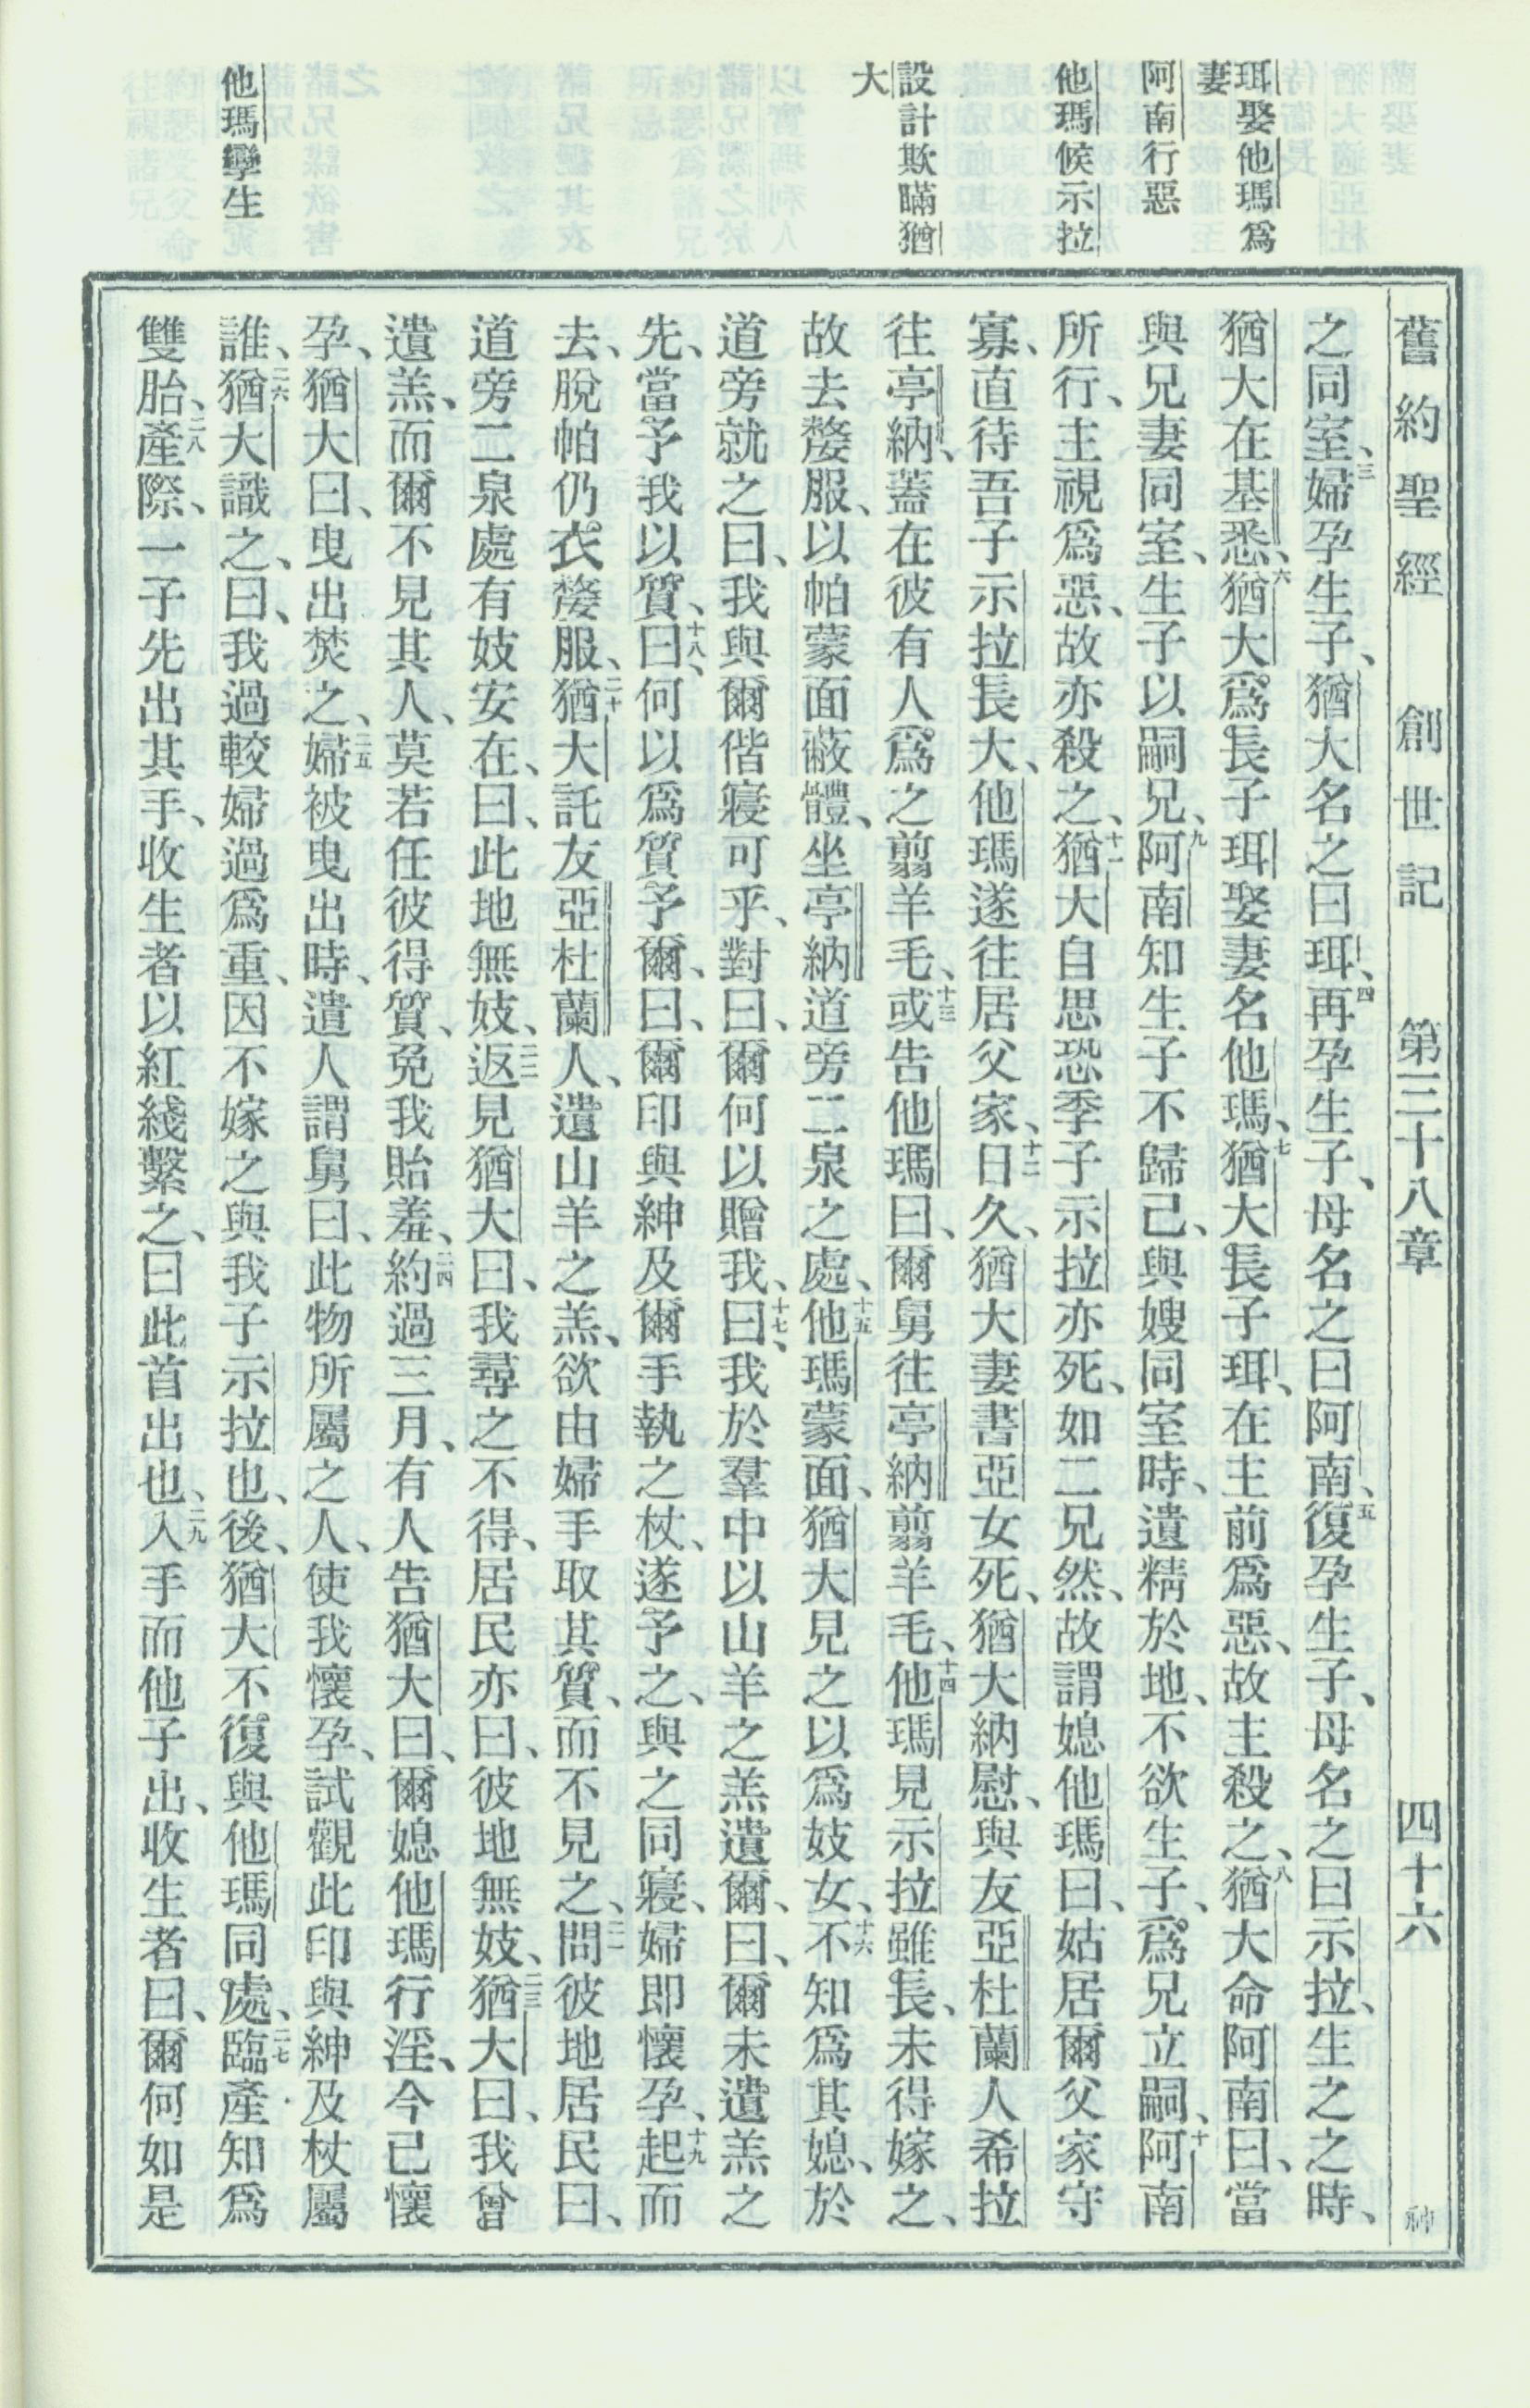 珥娶他瑪爲
妻
阿南行惡
他瑪候示拉
設計欺瞞猶
大
他瑪孿生
舊約聖經 創世記 第三十八章 四十六 神
之同室、三婦孕生子、猶大名之曰珥、四再孕生子、母名之曰阿南、五復孕生子、母名之曰示拉、生之之時、
猶大在基悉、六猶大爲長子珥娶妻名他瑪、七猶大長子珥、在主前爲惡、故主殺之、八猶大命阿南曰、當
與兄妻同室、生子以嗣兄、九阿南知生子不歸己、與嫂同室時、遺精於地、不欲生子、爲兄立嗣、十阿南
所行、主視爲惡、故亦殺之、十一猶大自思恐季子示拉亦死、如二兄然、故謂媳他瑪曰、姑居爾父家守
寡、直待吾子示拉長大、他瑪遂往居父家、十二日久、猶大妻書亞女死、猶大納慰、與友亞杜蘭人希拉
往亭納、蓋在彼有人爲之翦羊毛、十三或告他瑪曰、爾舅往亭納翦羊毛、十四他瑪見示拉雖長、未得嫁之、
故去嫠服、以帕蒙面蔽體、坐亭納道旁二泉之處、十五他瑪蒙面、猶大見之以爲妓女、十六不知爲其媳、於
道旁就之曰、我與爾偕寢可乎、對曰、爾何以贈我、十七曰、我於羣中以山羊之羔遺爾、曰、爾未遺羔之
先、當予我以質、十八曰、何以爲質予爾、曰、爾印與紳及爾手執之杖、遂予之、與之同寢、婦即懷孕、十九起而
去、脫帕仍衣嫠服、二十猶大託友亞杜蘭人、遺山羊之羔、欲由婦手取其質、而不見之、二一問彼地居民曰、
道旁二泉處有妓安在、曰、此地無妓、二二返見猶大曰、我尋之不得、居民亦曰、彼地無妓、二三猶大曰、我曾
遺羔、而爾不見其人、莫若任彼得質、免我貽羞、二四約過三月、有人告猶大曰、爾媳他瑪行淫、今已懷
孕、猶大曰、曳出焚之、二五婦被曳出時、遣人謂舅曰、此物所屬之人、使我懷孕、試觀此印與紳及杖屬
誰、二六猶大識之、曰、我過較婦過爲重、因不嫁之與我子示拉也、後、猶大不復與他瑪同處、二七臨產知爲
雙胎、二八產際、一子先出其手、收生者以紅綫繫之、曰此首出也、二九入手而他子出、收生者曰、爾何如是